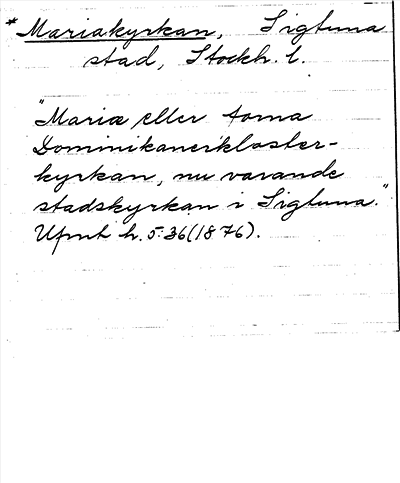 *Mariakyrkan, Sigtuna
stad, Stockh. l.
"Mariæ eller forna
Dominikanerkloster-
kyrkan, nu varande
stadskyrkan i Sigtuna."
Ufmt h. 5:36 (1876).